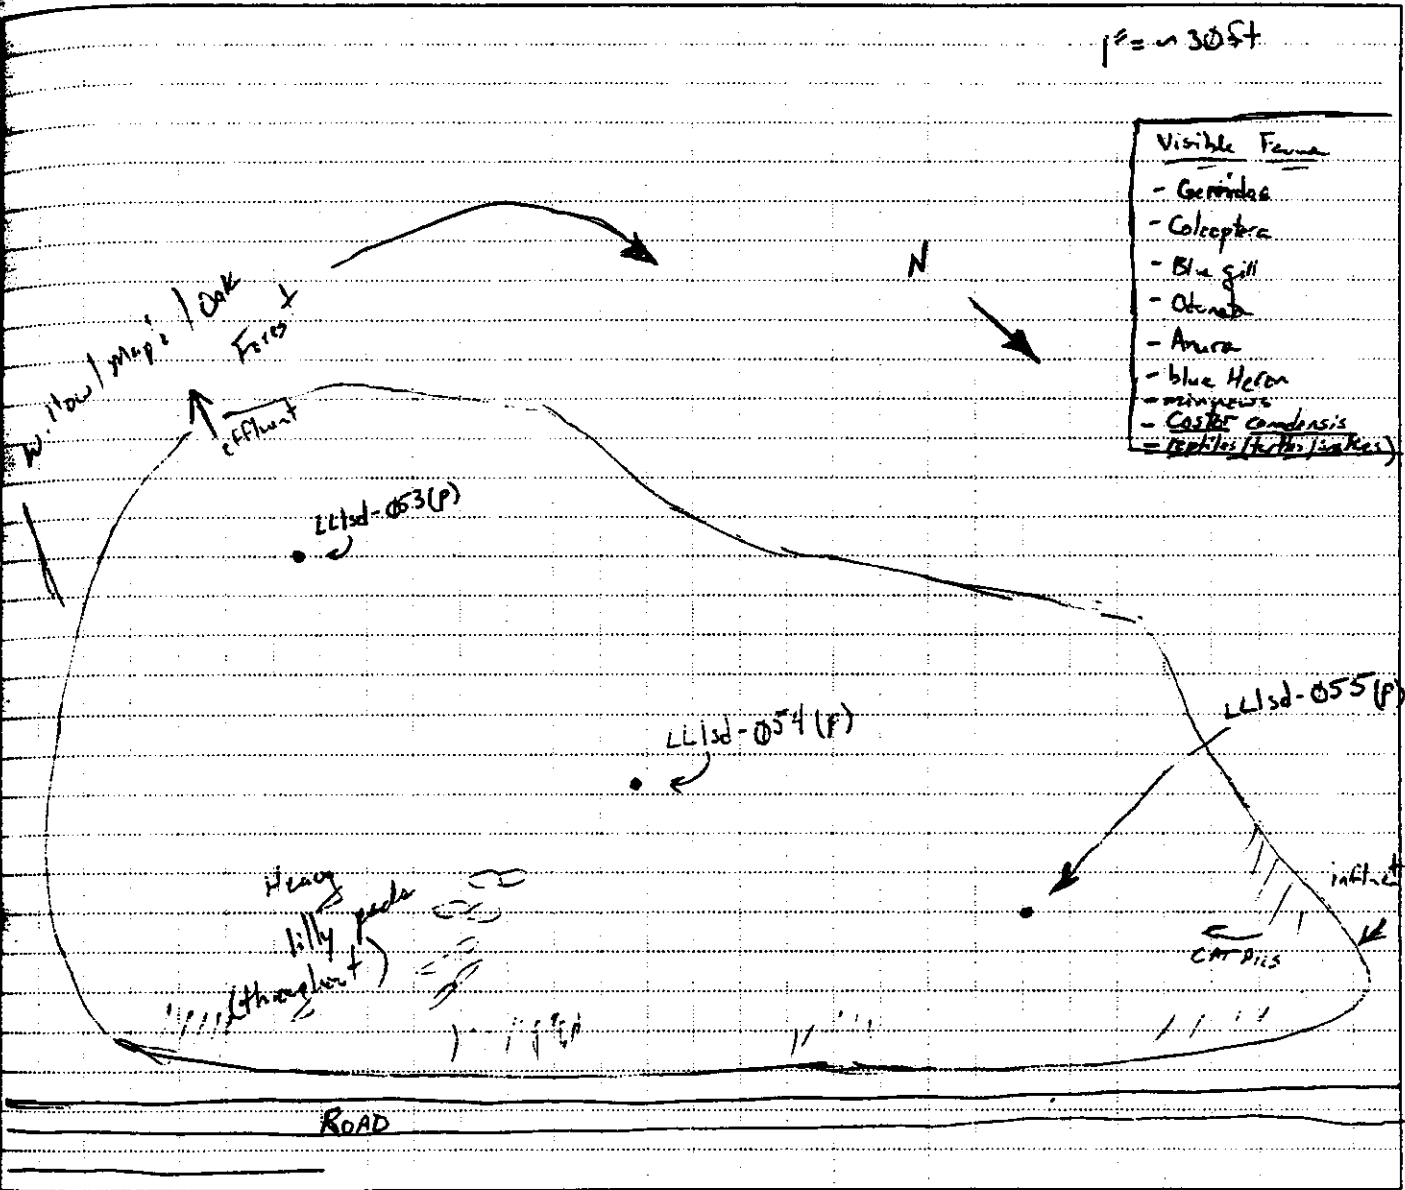 1" = ~ 30ft
Visible Fauna
- Gerridae
- Coleoptera
- Blue gill
- Odonata
- Anura
- blue Heron
- minnows
- Castor canadensis
- reptiles/turtles/snakes)
N
Willow/Maple/Oak
Forest
effluent
LL1sd-053(p)
LL1sd-054(p)
LL1sd-055(p)
influent
CAT
Heavy
lilly pads
(throughout)
ROAD